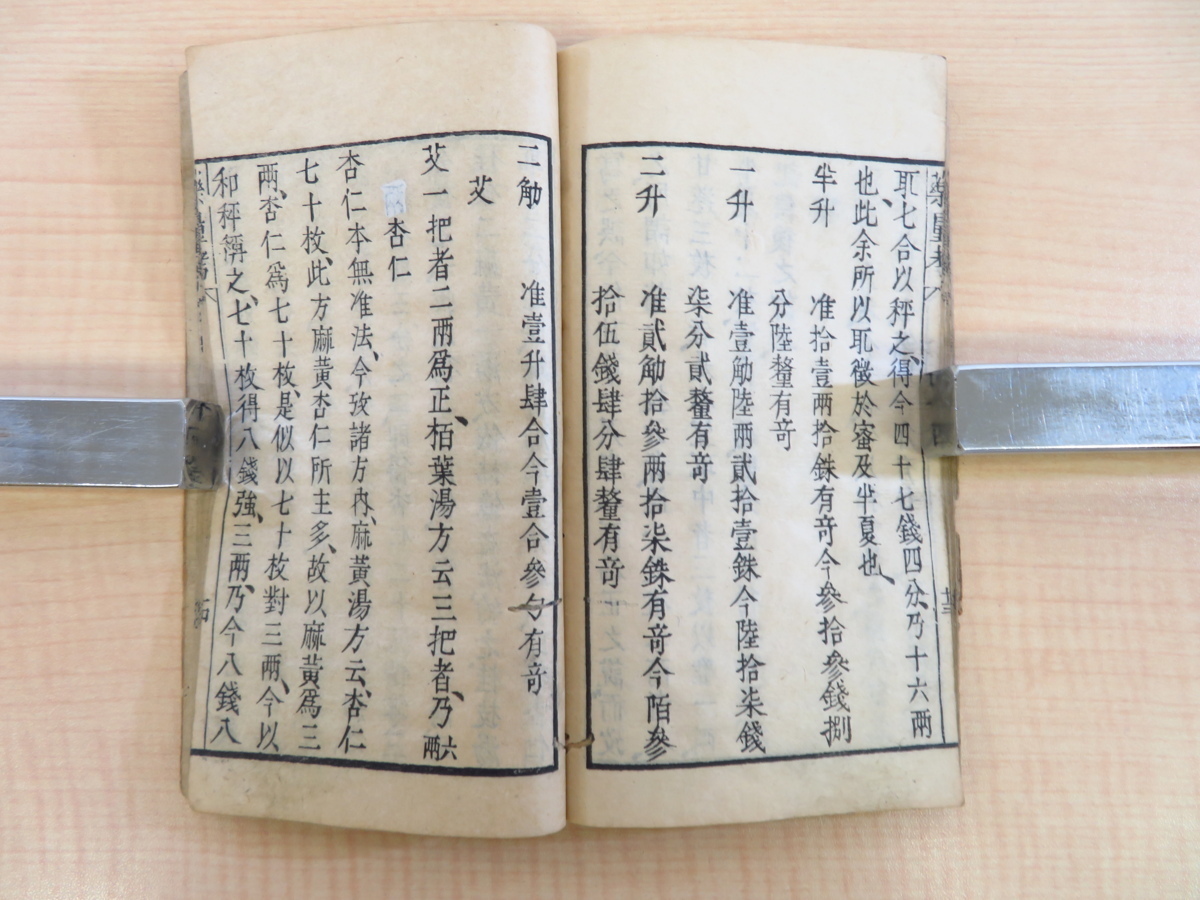 耴七合以秤之、得今四十七錢四分、乃十六兩
也、此余所以耴徵於審及半夏也、
半升　准拾壹兩拾銖有竒今參拾參錢捌
分陸釐有竒
一升　准壹觔陸兩貳拾壹銖今陸拾柒錢
柒分貳釐有竒
二升　准貳觔拾參兩拾柒銖有竒今陌參
拾伍錢肆分肆釐有竒
二觔　准壹升肆合今壹合參勺有竒
艾
艾一把者二兩爲正、栢葉湯方云三把者、乃六兩
杏仁
杏仁本無准法、今攷諸方內、麻黃湯方云、杏仁
七十枚、此方麻黃杏仁所主多、故以麻黃爲三
兩、杏仁爲七十枚、是似以七十枚對三兩、今以
和秤稱之、七十枚得八錢強、三兩、乃今八錢八
藥量考